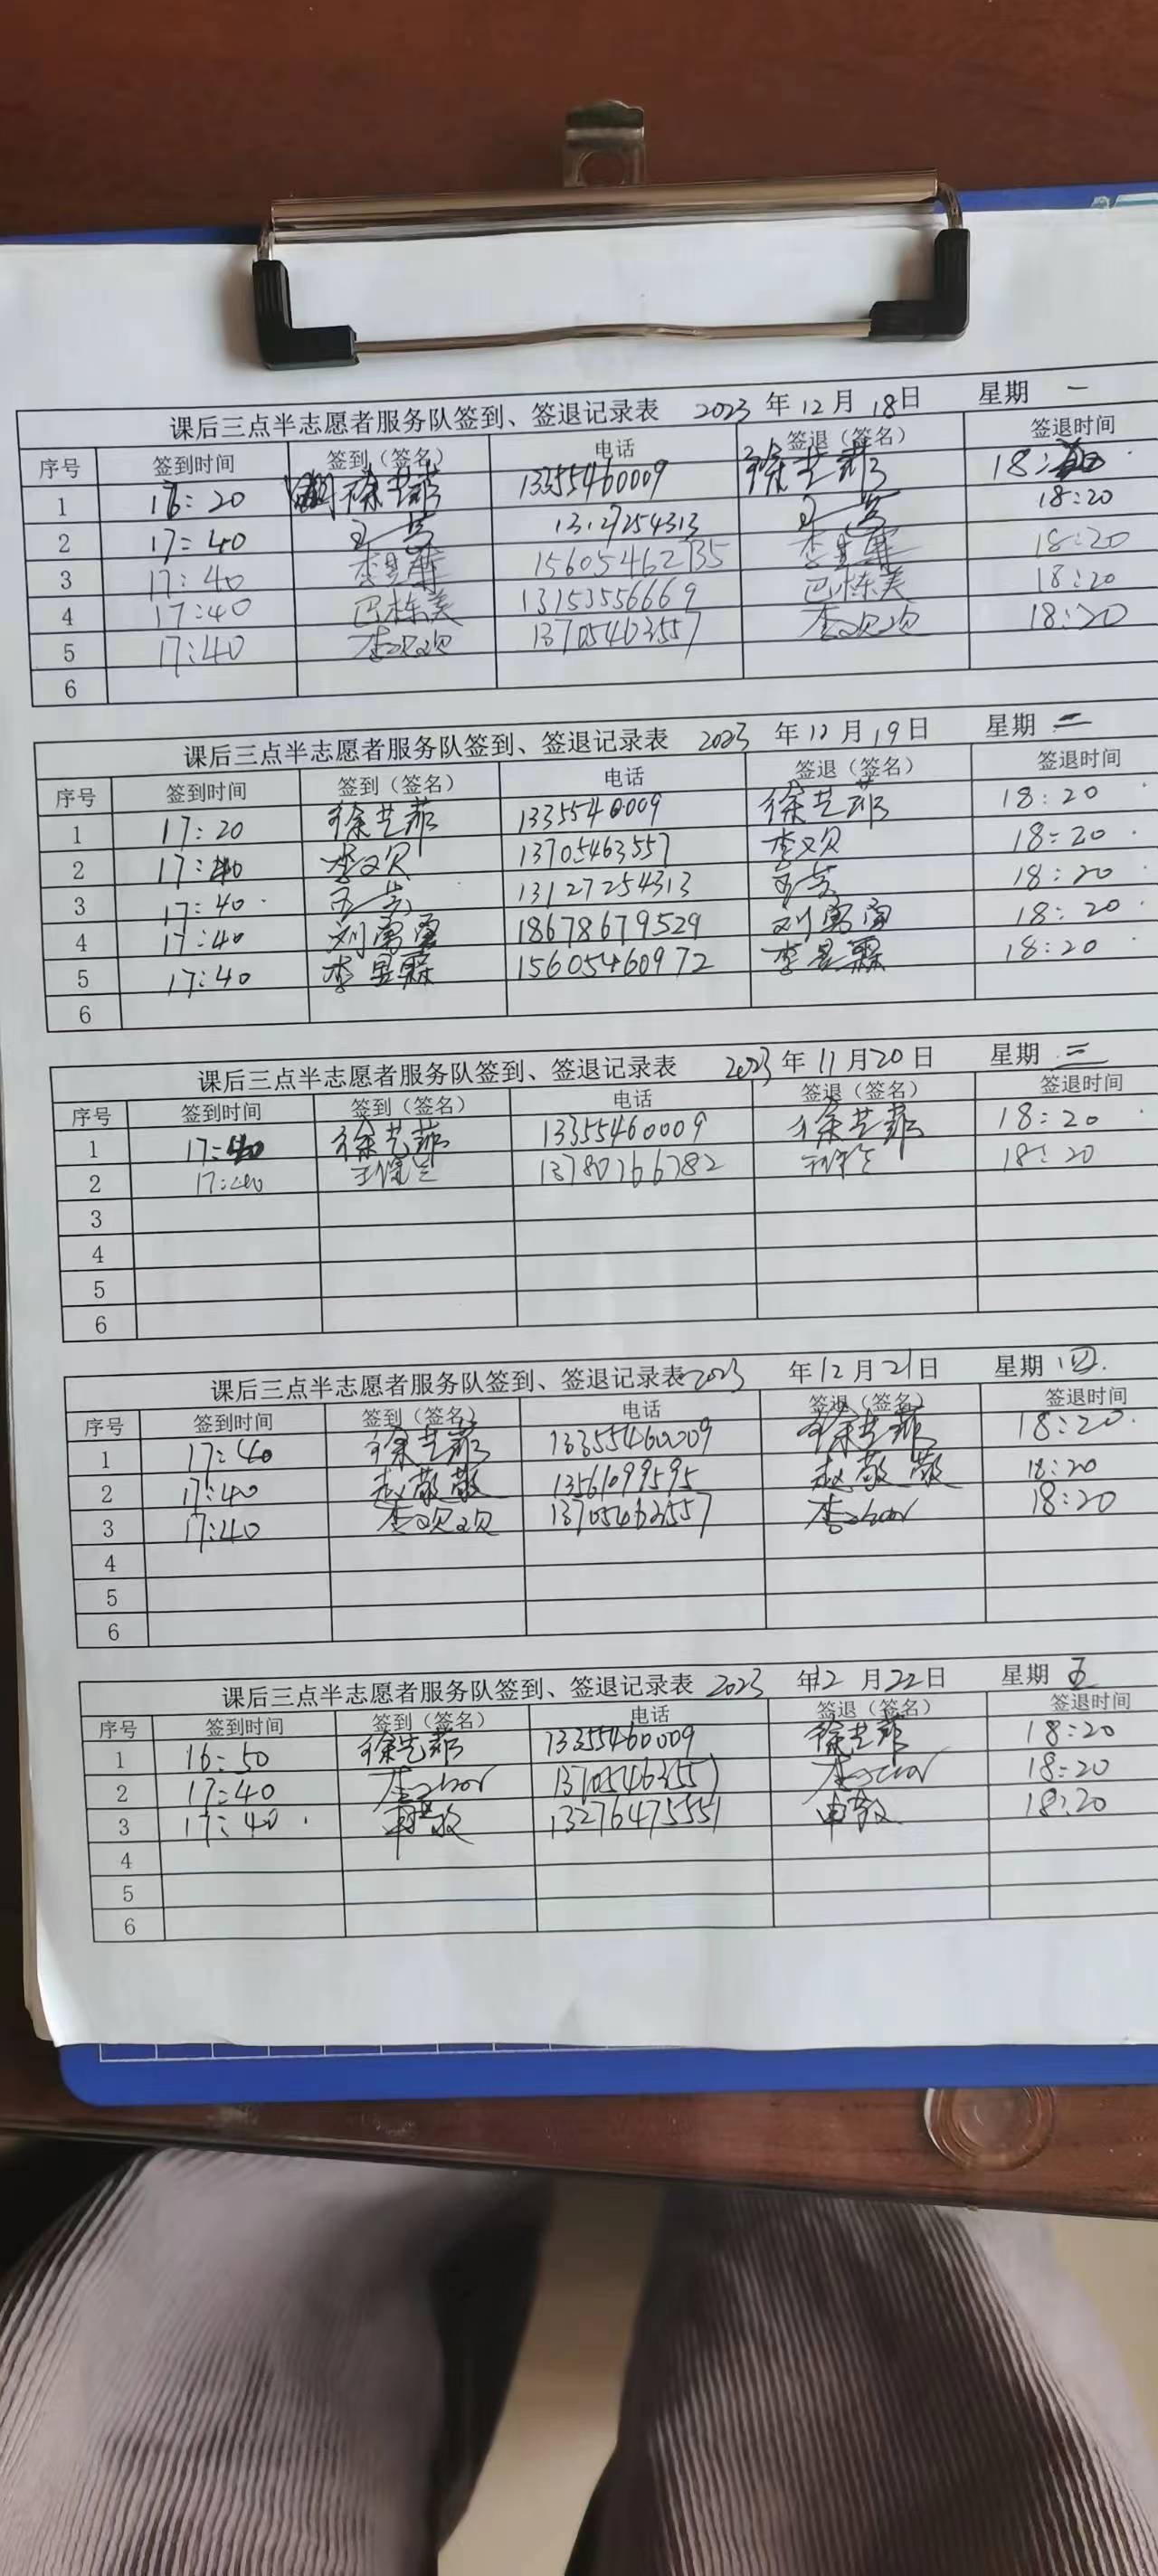 课后三点半志愿者服务队签到、签退记录表 2023 年 12 月 18 日 星期 一
序号 签到时间 签到（签名） 电话 签退（签名） 签退时间
1 16:20 徐艺菲 13355460009 徐艺菲 18:20
2 17:40 13127254313 18:20
3 17:40 18:20
4 17:40 巴栋美 13153556669 巴栋美 18:20
5 17:40 李欢欢 13705463557 李欢欢 18:20
6
课后三点半志愿者服务队签到、签退记录表 2023 年 12 月 19 日 星期 二
序号 签到时间 签到（签名） 电话 签退（签名） 签退时间
1 17:20 徐艺菲 徐艺菲 18:20
2 17:40 李欢 13705463557 李欢 18:20
3 17:40 13127254313 18:20
4 17:40 18678679529 18:20
5 17:40 李昱霖 15605460972 李昱霖 18:20
6
课后三点半志愿者服务队签到、签退记录表 2023 年 11 月 20 日 星期 三
序号 签到时间 签到（签名） 电话 签退（签名） 签退时间
1 17:40 徐艺菲 13355460009 徐艺菲 18:20
2 17:40 13780766782 18:20
3
4
5
6
课后三点半志愿者服务队签到、签退记录表 2023 年 12 月 21 日 星期 四
序号 签到时间 签到（签名） 电话 签退（签名） 签退时间
1 17:40 徐艺菲 13355460009 徐艺菲 18:20
2 17:40 赵敬敬 13561099595 赵敬敬 18:20
3 17:40 李欢欢 13705463557 18:20
4
5
6
课后三点半志愿者服务队签到、签退记录表 2023 年 12 月 22 日 星期 五
序号 签到时间 签到（签名） 电话 签退（签名） 签退时间
1 16:50 徐艺菲 13355460009 徐艺菲 18:20
2 17:40 13705463557 18:20
3 17:40 13276475551 18:20
4
5
6